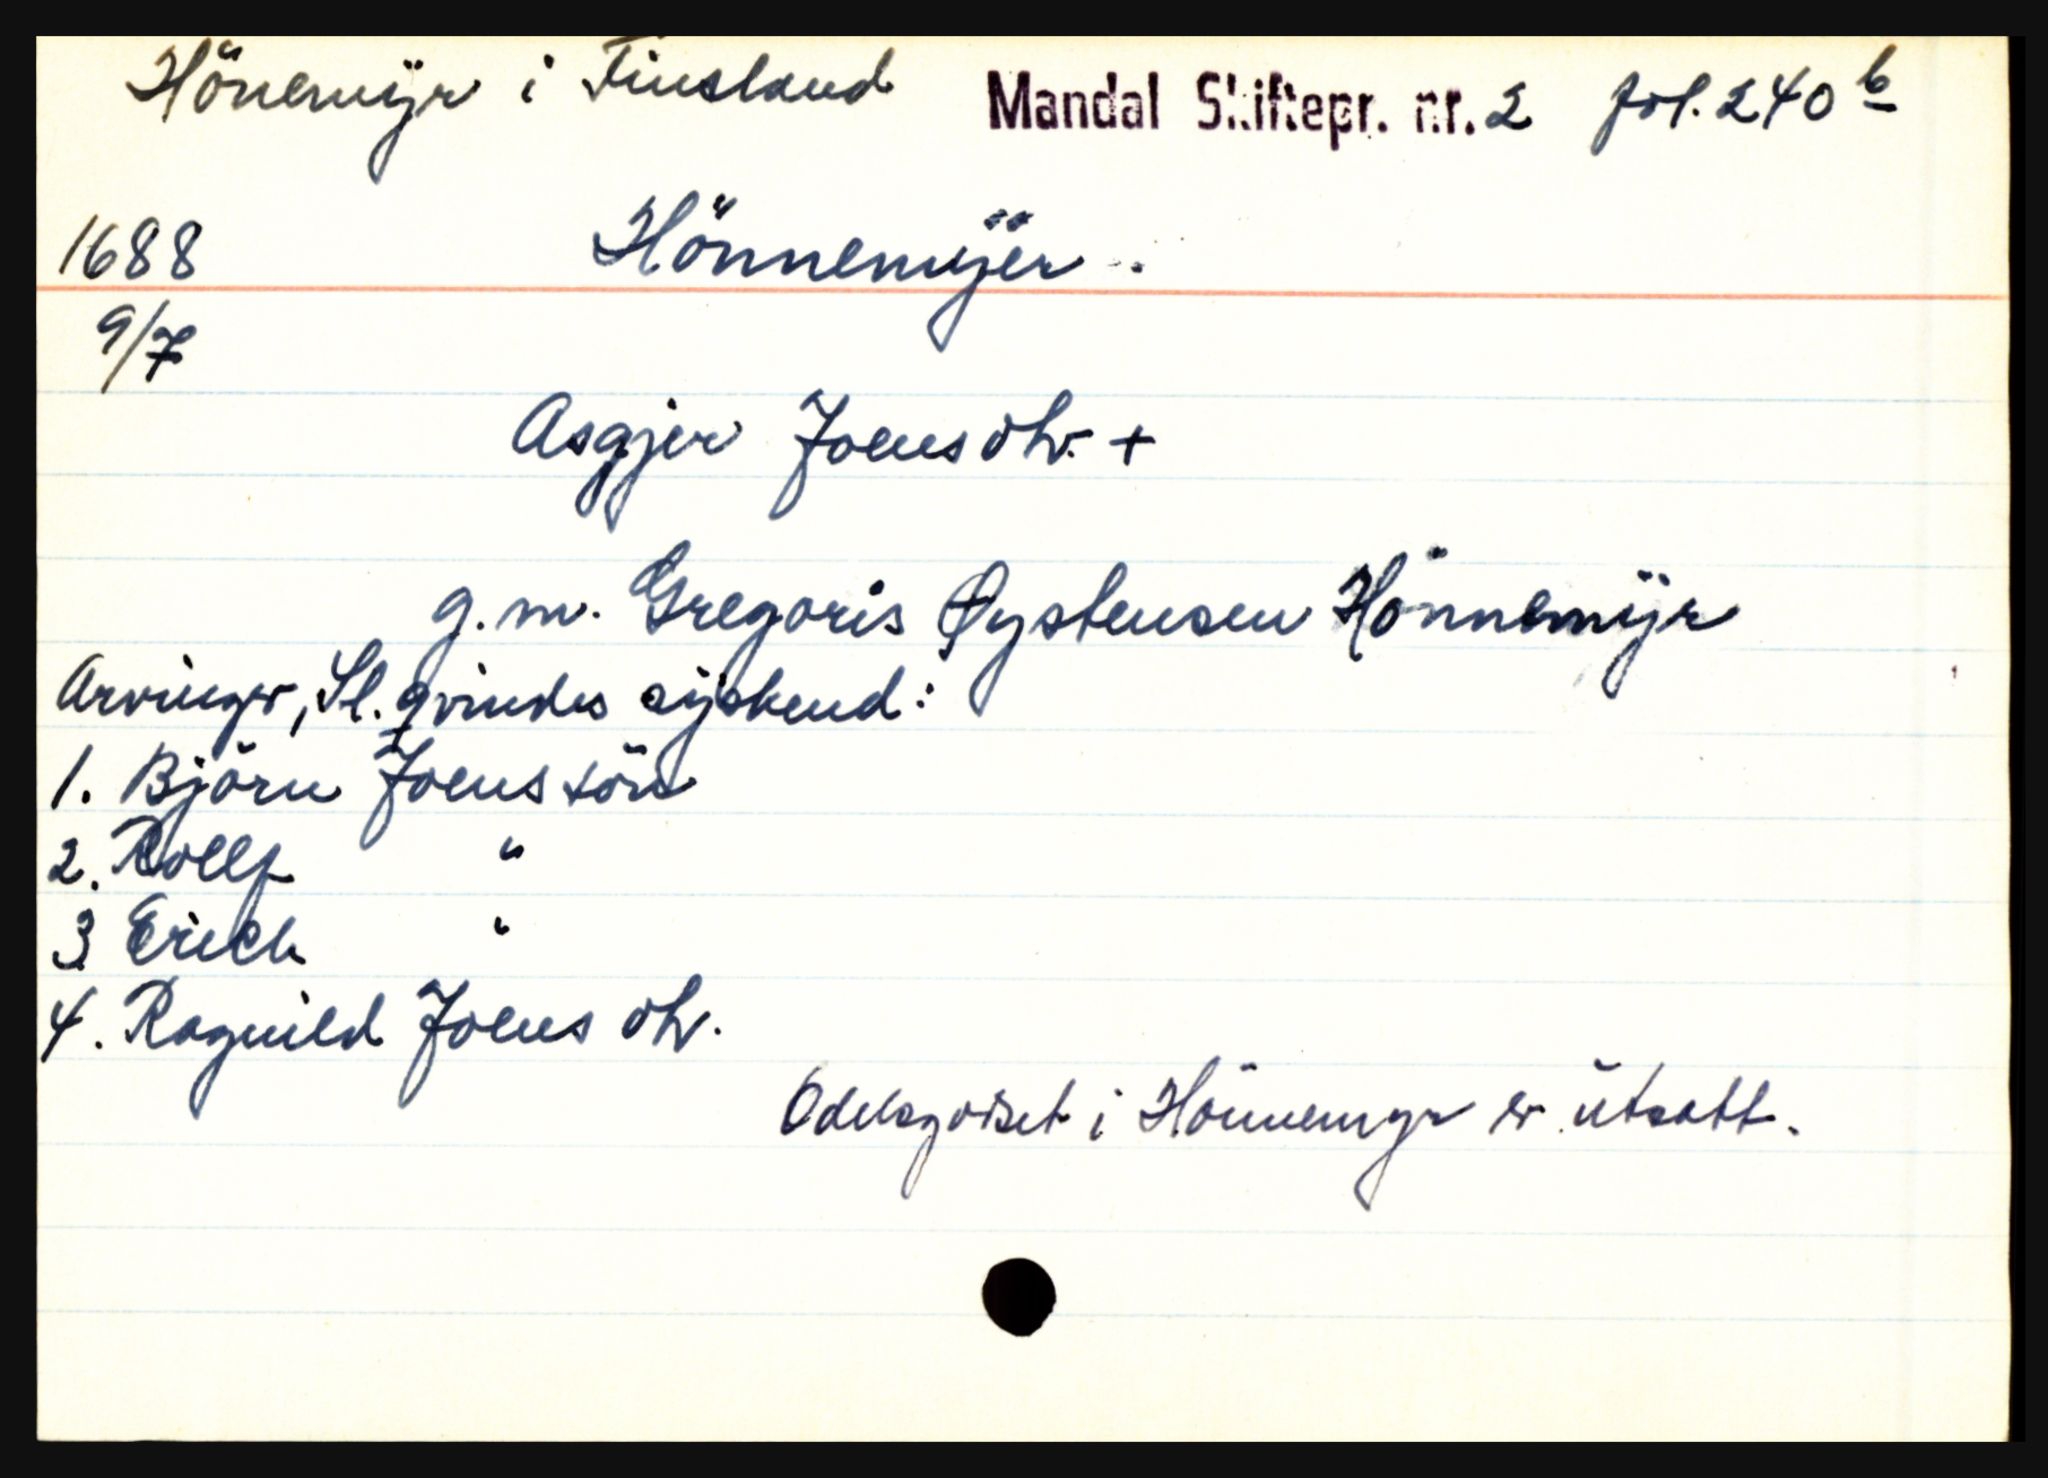 Hönemÿr i Finsland Mandal Skiftepr. nr. 2 fol. 240 b
1688 Hönnemÿer
9/7
Asgjer Joensdtr. +
g.m. Gregoris Øystensen Hönnemÿr
Arvinger, Sl. qvindes sÿskend:
1. Björn Joenssön
2. Rollf "
3 Erich "
4. Ragnild Joensdtr.
Odelsgodset i Hönnemyr er ŭtsatt.